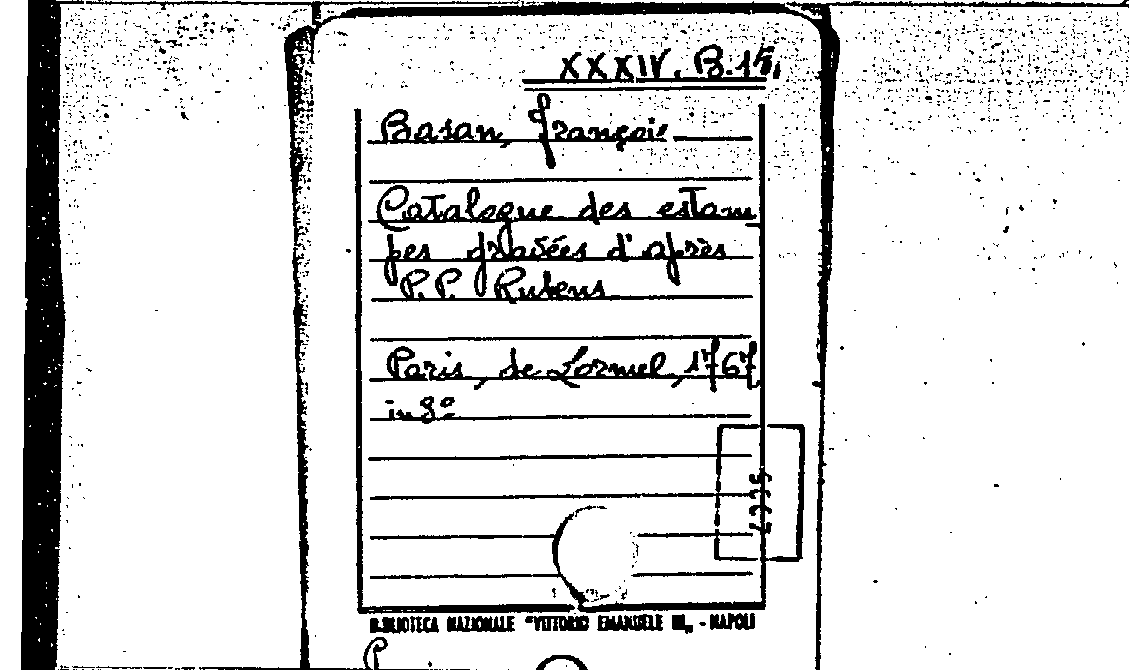 XXXIV. B.15.
Basan, François
Catalogue des estam
pes gravées d'après
P.P. Rubens
Paris, de Lormel, 1767
in 8º
BIBLIOTECA NAZIONALE "VITTORIO EMANUELE III„ - NAPOLI